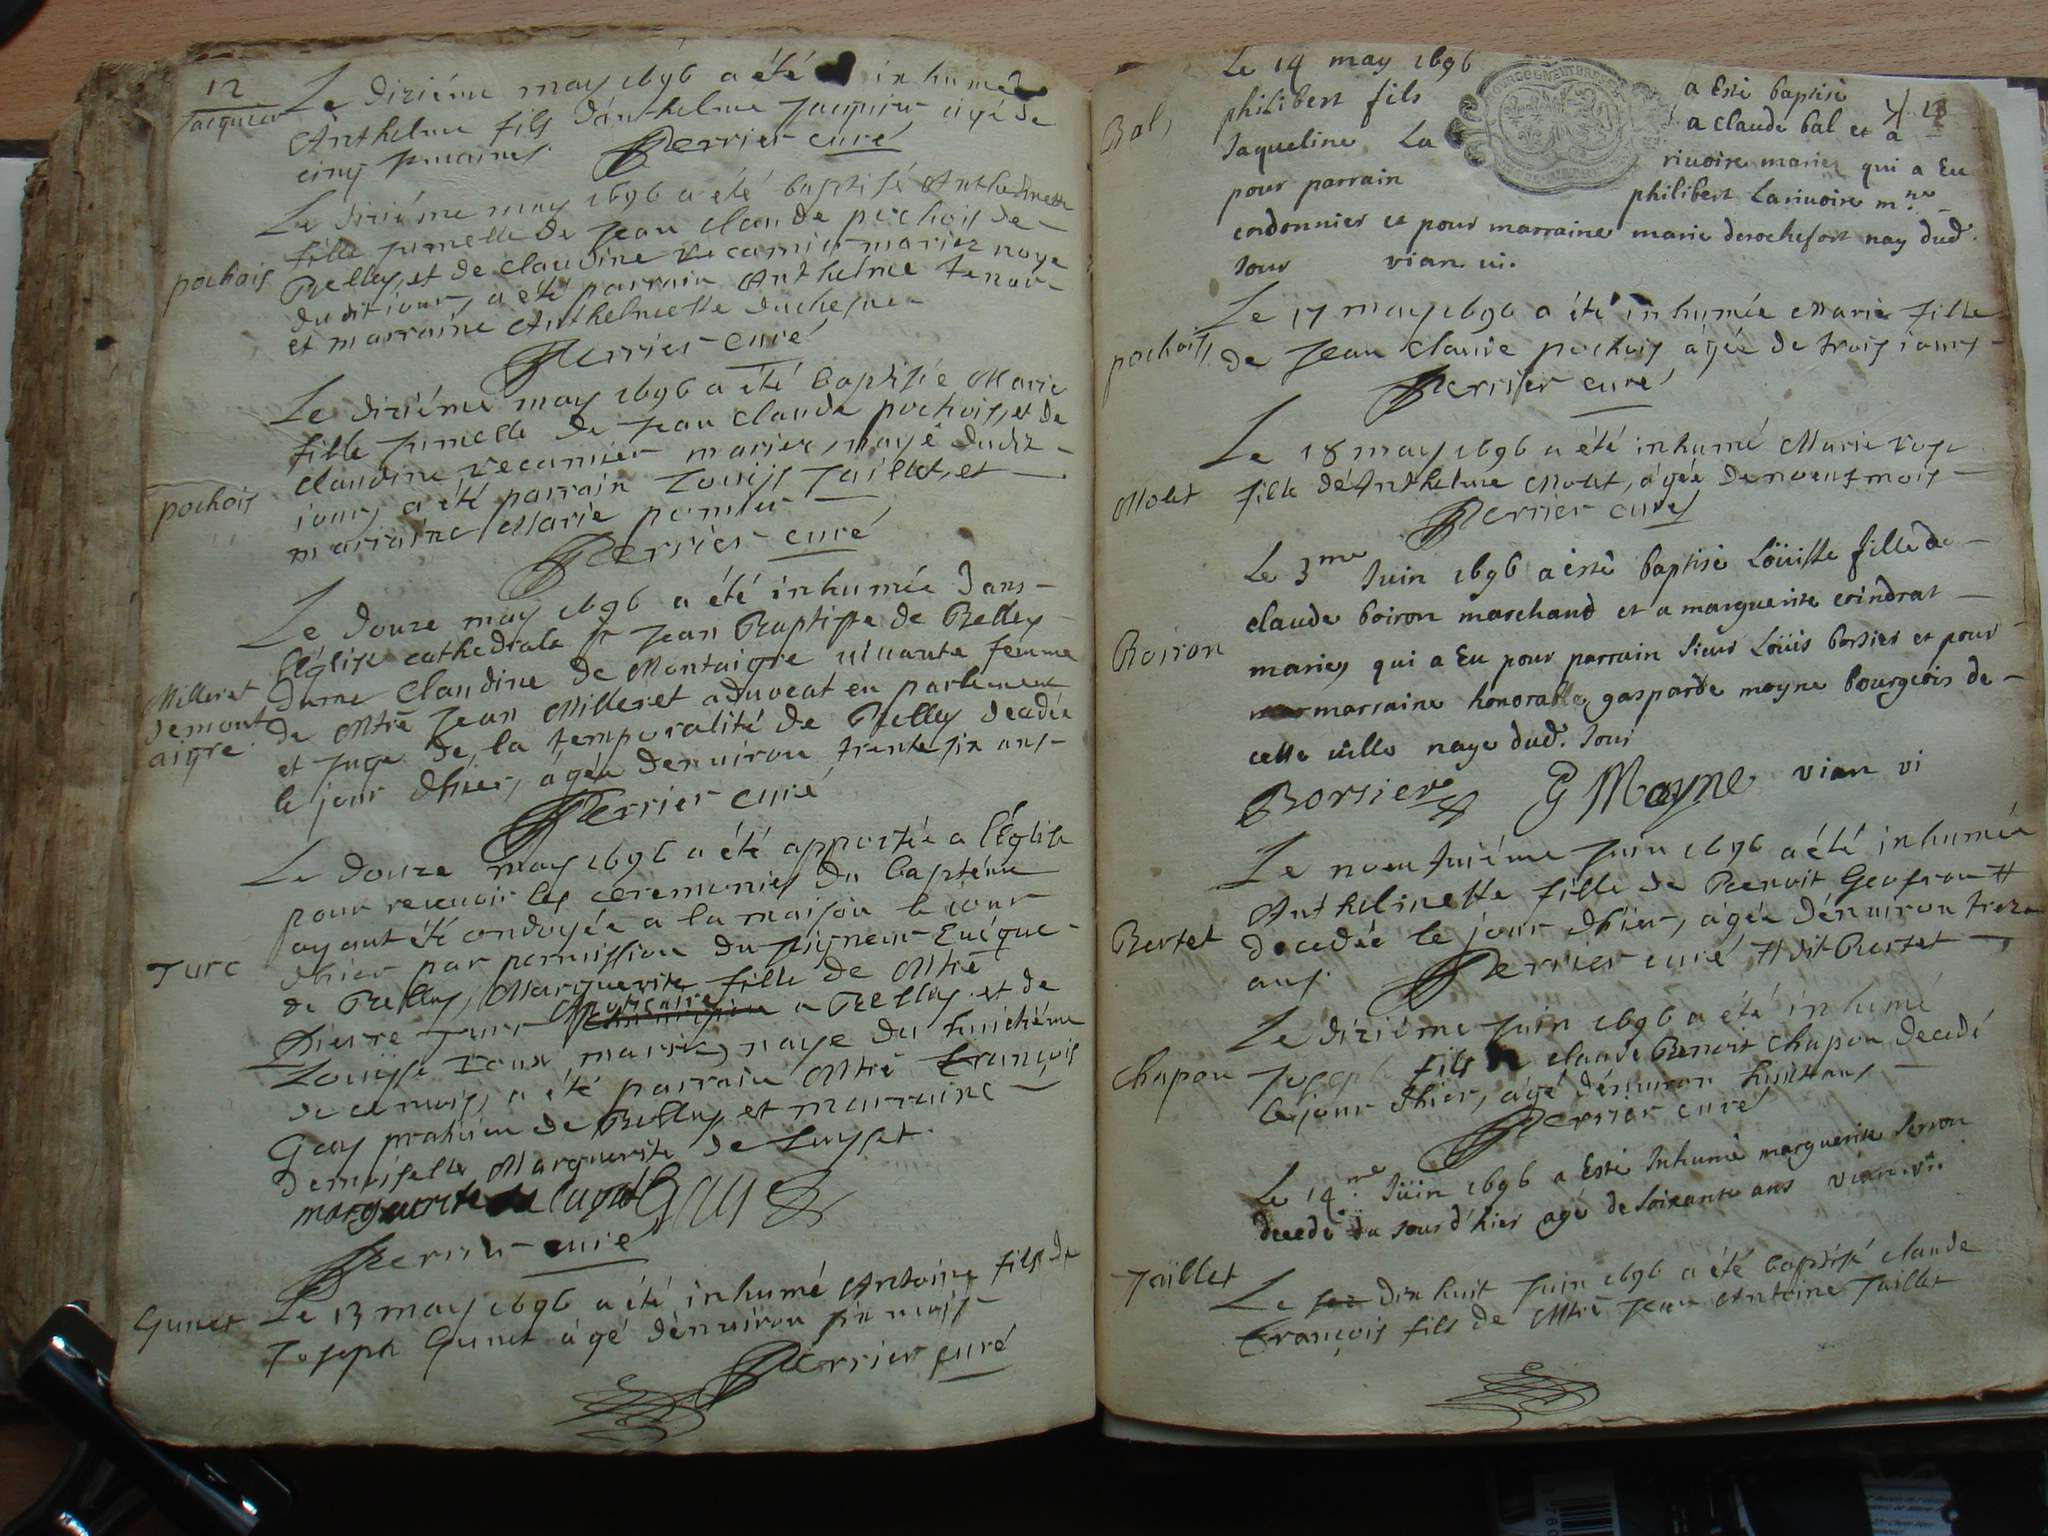 12
Jacquier
Le diziéme may 1696 a été inhumé
Anthelme fils d'anthelme Jacquier, agé de
cinq semaines. Perrier curé
pochois
Le diziéme may 1696 a été baptisée Anthelmette
fille jumelle de Jean Claude pochois de
Belley, et de claudine recamier mariez naye
dudit jour, a été parrain Anthelme
et marraine Anthelmette duchesne
Perrier curé
pochois
Le diziéme may 1696 a été baptisée Marie
fille jumelle de Jean Claude pochois, et de
claudine recamier mariez, naye dudit
jour, a été parrain Louys Jaillet, et
marraine Marie
Perrier curé
Milleret
demont
aigre
Le douze may 1696 a été inhumée dans
l'Église cathedrale st Jean Baptiste de Belley
dame Claudine de Montaigre vivante femme
de Mtre Jean Milleret advocat en parlement
et juge de la temporalité de Belley decedée
le jour d'hier, agée d'enuiron trente six ans
Perrier curé
Turc
Le douze may 1696 a été apportée a l'Église
pour recevoir les ceremonies du baptéme
ayant été ondoyée a la maison le jour
d'hier par permission du seigneur Euéque
de Belley, Marguerite fille de Mtre
Pierre Turc apoticaire a Belley et de
Louyse roux mariez, naye du huictiéme
de ce mois, a été parrain Mtre François
Gay praticien de Belley, et marraine
demoiselle Marguerite de Luyset
marguerite de luyset Gay
Perrier curé
Gunet
Le 13 may 1696 a été inhumé Antoine fils de
Joseph Gunet agé d'enuiron six mois
Perrier curé
13
Bal
Le 14 may 1696 a Esté baptisé
philibert fils a claude bal et a
Jaqueline La riuoire mariez qui a Eu
pour parrain philibert Lariuoire mre
cordonnier et pour marraine marie derochefort nay dud.
Jour vian vi.
pochois
Le 17 may 1696 a été inhumée Marie fille
de Jean Claude pochois agée de trois iours
Perrier curé
Molet
Le 18 may 1696 a été inhumé Marie
fille d'Anthelme Molet, agée de neuf mois
Perrier curé
Boiron
Le 3me Juin 1696 a esté baptisé Loüisse fille de
claude boiron marchand et a marguerite coindrat
mariez qui a Eu pour parrain sieur Loüis borsier et pour
marraine honorable gasparde moyne bourgeois de
cette uille naye dud. Jour
Borsier G Moyne vian vi
Bertet
Le neufuiéme Juin 1696 a été inhumée
Anthelmette fille de Benoit Geofray #
decedée le jour d'hier, agée d'enuiron treze
ans. Perrier curé # dit Bertet
Chapon
Le diziéme Juin 1696 a été inhumé
Joseph fils de claude Benoit Chapon decedé
le jour d'hier, agé d'enuiron huict ans
Perrier curé
Le 14me Jüin 1696 a Esté Inhumé marguerite
decedé du Jour d'hier agé de soixante ans vian vi.
Jaillet
Le dix huit Juin 1696 a été baptisé claude
François fils de Mtre Jean Antoine Jaillet